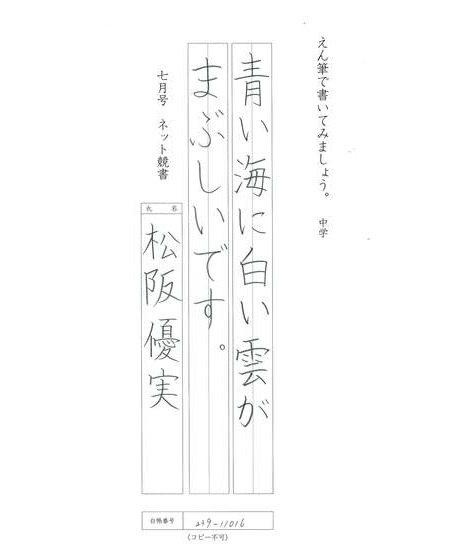 えん筆で書いてみましょう。 中学
青い海に白い雲が
まぶしいです。
七月号 ネット競書
氏 名
松阪優実
台帳番号 239-11016
(コピー不可)